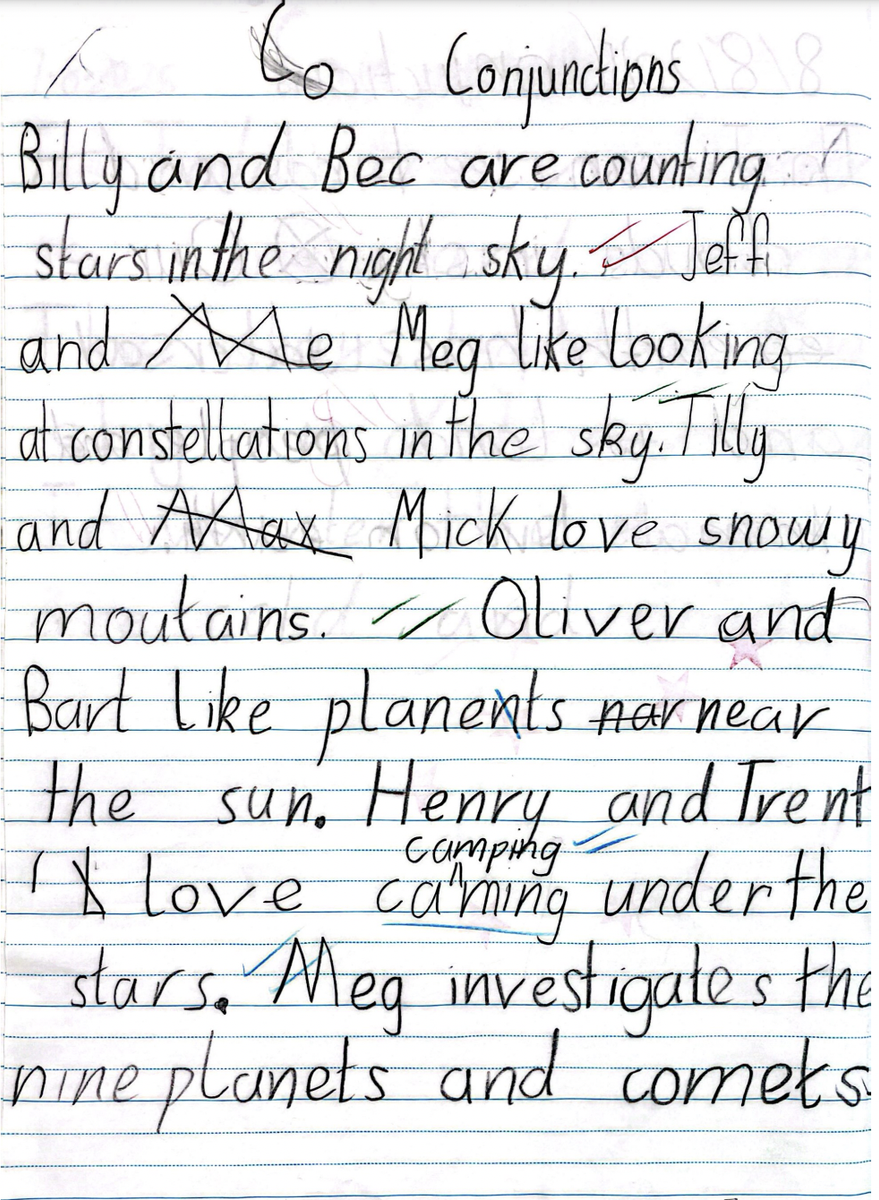 Co Conjunctions
Billy and Bec are counting
stars in the night sky. Jeff
and Me Meg like looking
at constellations in the sky. Tilly
and Max Mick love snowy
moutains. Oliver and
Bart like planents nar near
the sun. Henry and Trent
camping
love caming under the
stars. Meg investigates the
nine planets and comets.